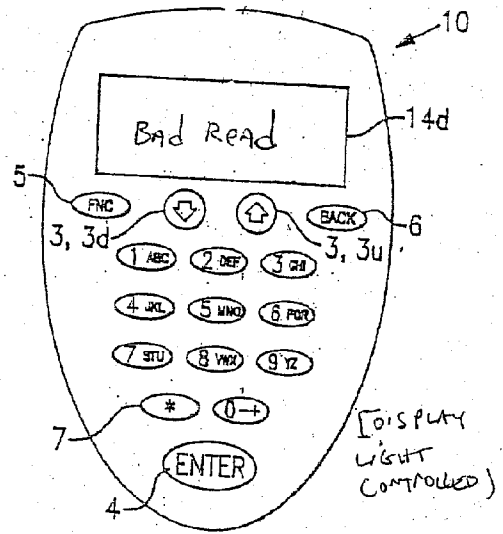 10
BAd ReAd
14d
5
FNC
BACK
6
3, 3d
3, 3u
1 ABC 2 DEF 3 GHI
4 JKL 5 MNO 6 PQR
7 STU 8 VWX 9 YZ
7
* 0-+
ENTER
4
[DISPLAY
LIGHT
CONTROLLED)